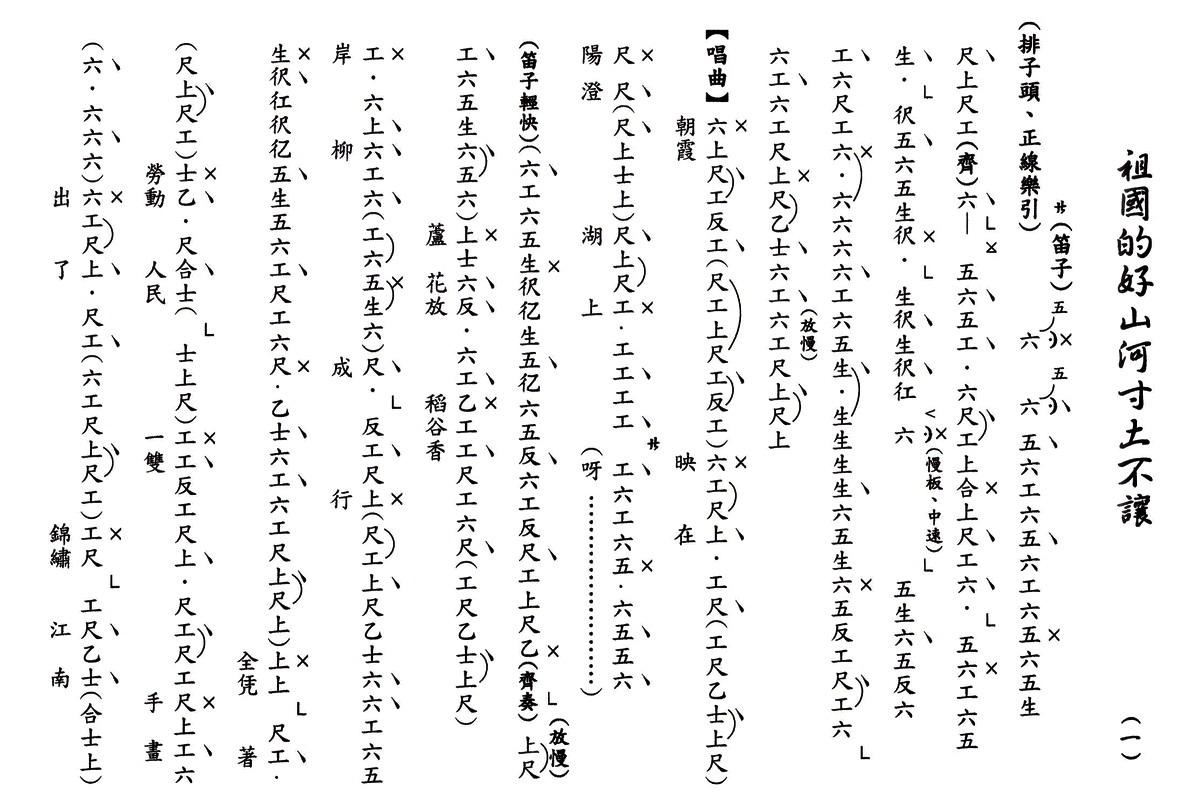 祖國的好山河寸土不讓 (一)
(排子頭、正線樂引) サ(笛子)五六 五六 五六工六五六工六五六五生
尺上尺工(齊)六— 五六五工·六尺工上合上尺工六· 五六工六五
生· 伬五六五生伬· 生伬生伬仜 六(慢板、中速) 五生六五反六
工六尺工六·六六六工六五生·生生生六五生六五反工尺工六
六工六工尺上尺乙士六工六工尺上尺上(放慢)
【唱曲】六上尺工反工(尺工上尺工反工)六工尺上·工尺(工尺乙士上尺)
朝霞 映 在
尺 尺(尺上士上)尺上尺工·工工工 サ工六工六五·六五五六
陽 澄 湖 上 (呀………………)
(笛子輕快)(六工六五生伬亿生五亿六五反六工反尺工上尺乙(齊奏)上尺(放慢)
工六五生六五六)上士六反·六工乙工工尺工六尺(工尺乙士上尺)
蘆 花 放 稻谷香
工·六上六工六(工六五生六)尺·反工尺上(尺工上尺乙士六六工六五
岸 柳 成 行
生伬仜伬亿五生五六工尺工六尺·乙士六工六工尺上尺上)上上 尺工·
全凭 著
(尺上尺工)士乙·尺合士( 士上尺)工工反工尺上·尺工尺工尺上工六
勞動 人民 一雙 手 畫
(六·六六六)六工尺上·尺工(六工尺上尺工)工尺 工尺乙士(合士上)
出 了 錦繡 江 南